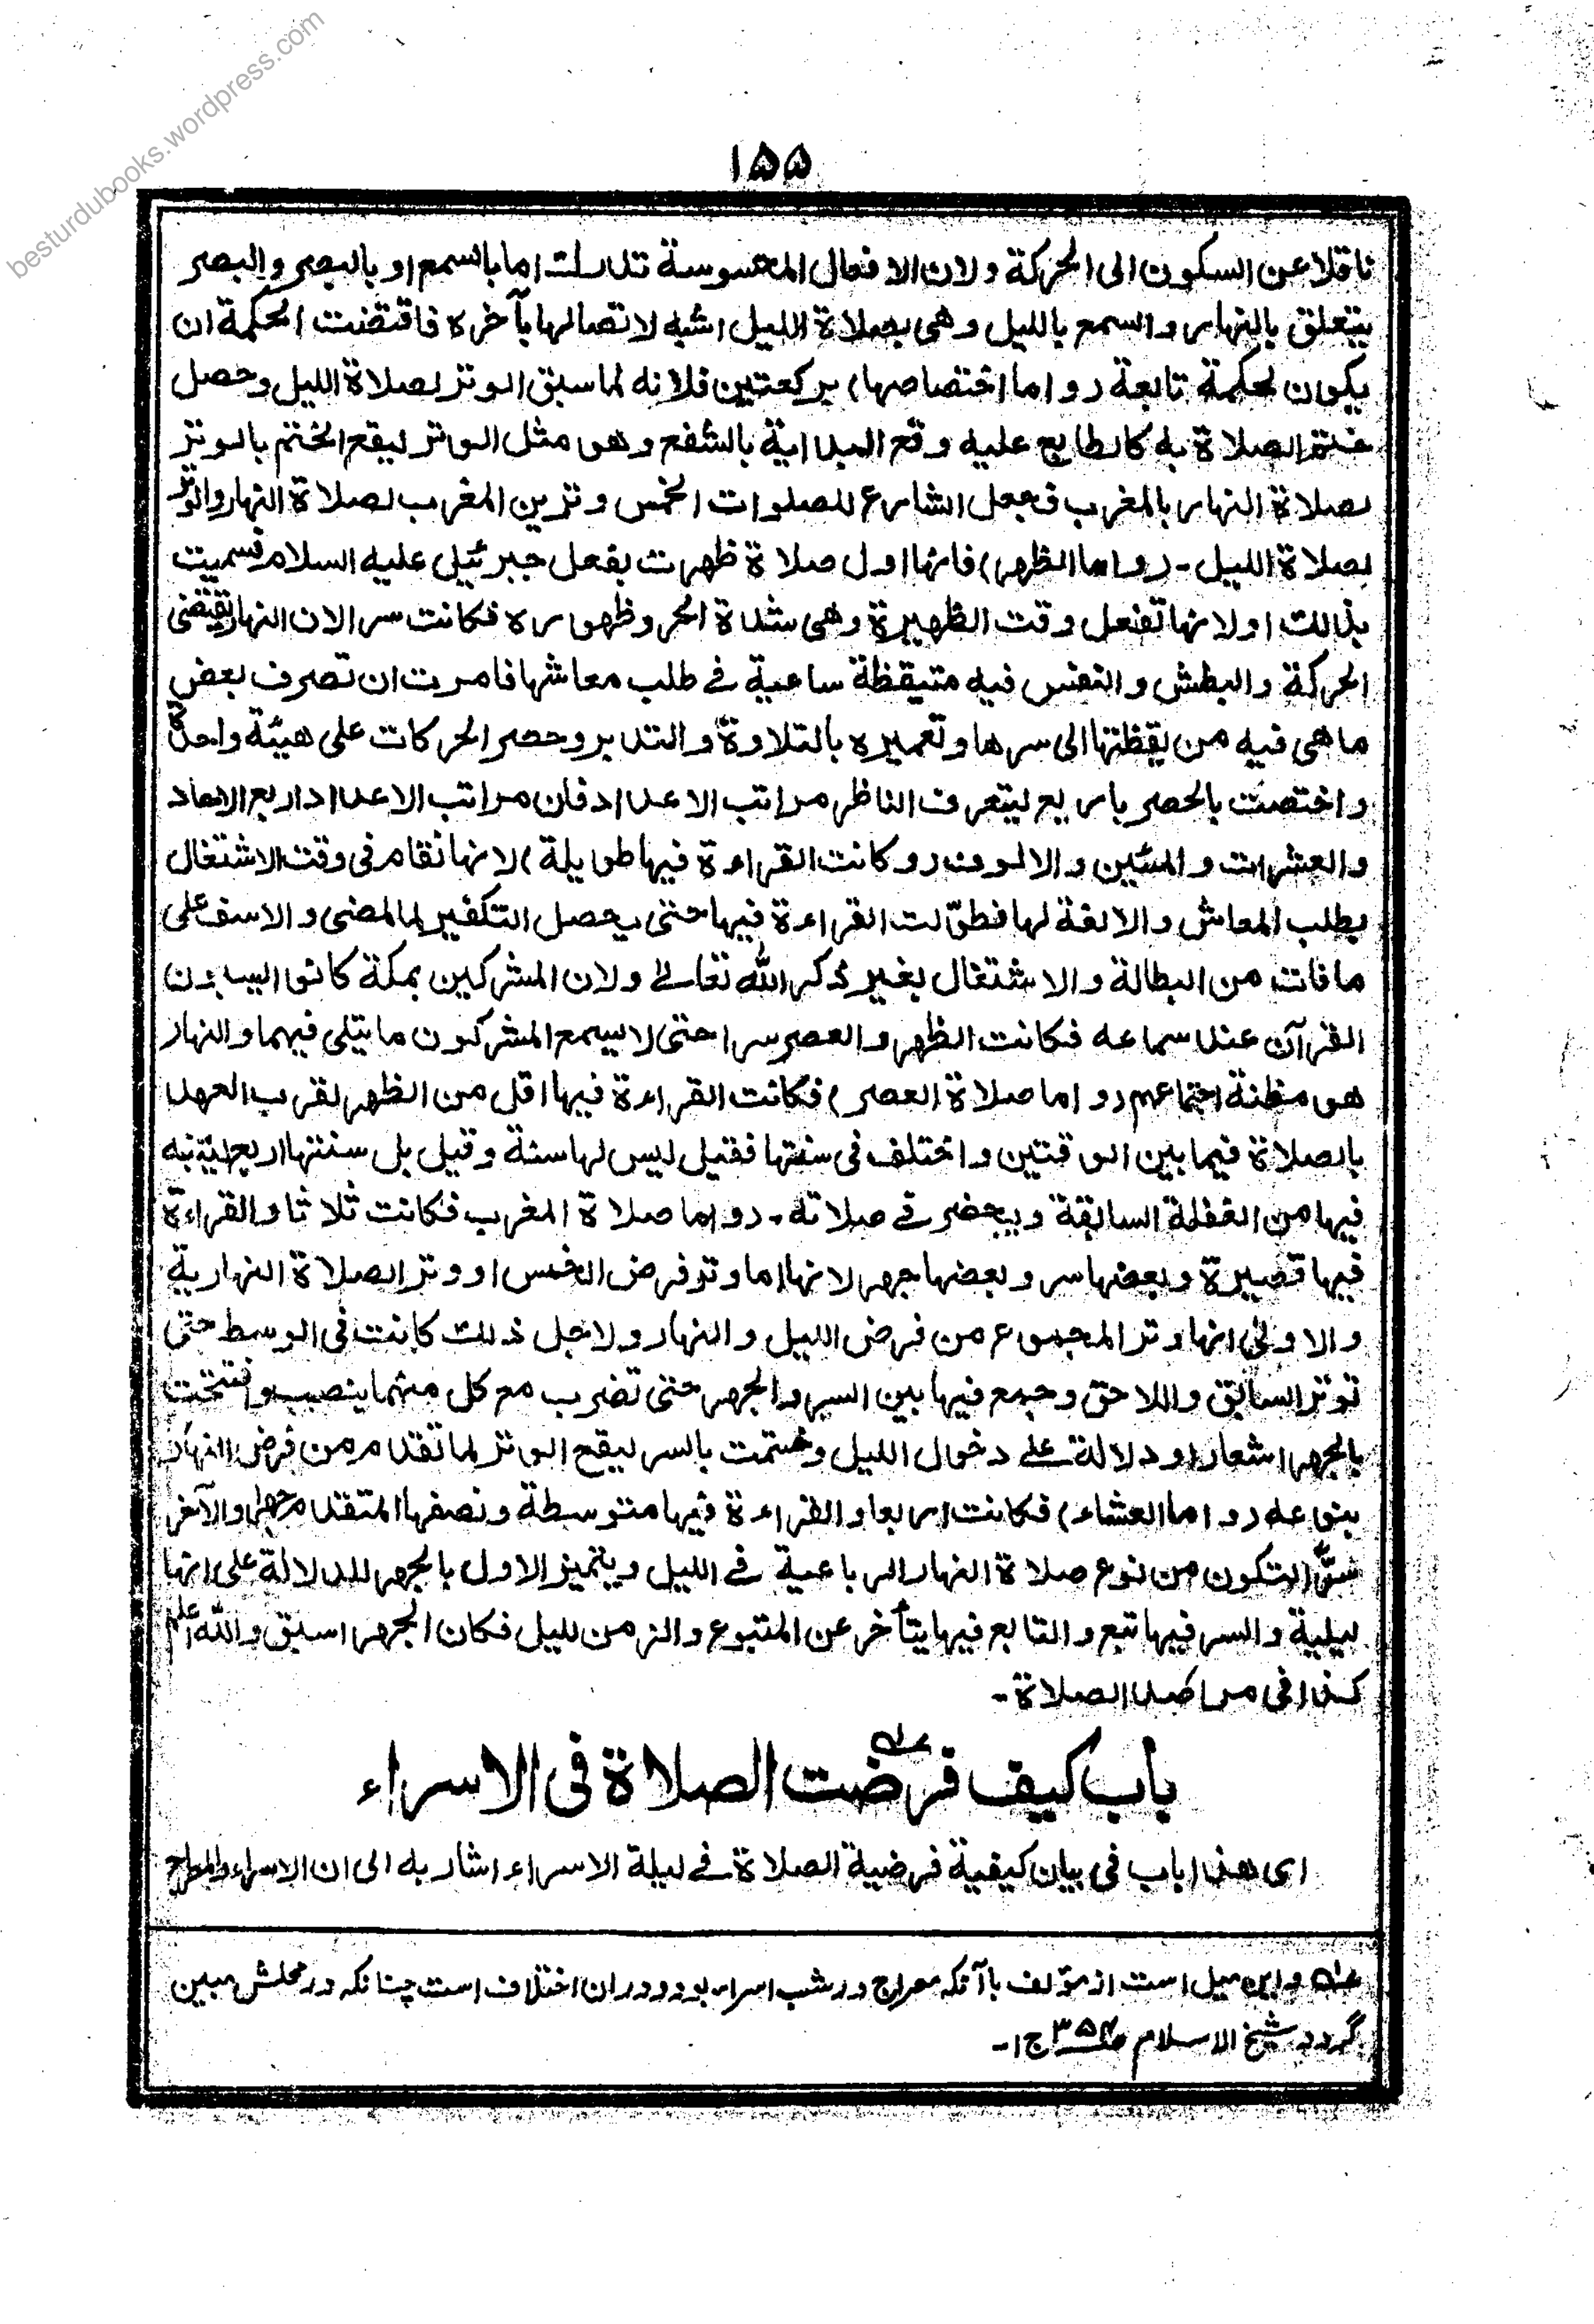 besturdubooks.wordpress.com
١٥٥
ناقلا عن السكون الى الحركة ولان الافعال المحسوسة تدرك اما بالسمع او بالبصر والبصر
يتعلق بالنهار والسمع بالليل وهي بصلاة الليل اشبه لاتصالها بآخره فاقتضت الحكمة ان
يكون لحكمة تابعة (واما اختصاصها) بركعتين فلانه لما سبق الوتر لصلاة الليل وحصل
ختم الصلاة به كالطابع عليه وقع البداية بالشفع وهو مثل الوتر ليقع الختم بالوتر
لصلاة النهار بالمغرب فجعل الشارع للصلوات الخمس وترين المغرب لصلاة النهار والوتر
لصلاة الليل - (واما الظهر) فانها اول صلاة ظهرت بفعل جبرئيل عليه السلام فسميت
بذلك اولانها تفعل وقت الظهيرة وهي شدة الحر وظهوره فكانت سرا لان النهار يقتضى
الحركة والبطش والنفس فيه متيقظة ساعية في طلب معاشها فامرت ان تصرف بعض
ما هي فيه من يقظتها الى سرها وتعميره بالتلاوة والتدبر وحصر الحركات على هيئة واحدة
واختصت بالحصر باربع ليتعرف الناظر مراتب الاعداد فان مراتب الاعداد اربع الاحاد
والعشرات والمئين والالوف (وكانت القراءة فيها طويلة) لانها تقام فى وقت الاشتغال
بطلب المعاش والالفة لها فطوّلت القراءة فيها حتى يحصل التكفير لما لمضى والاسف على
ما فات من البطالة والاشتغال بغير ذكر الله تعالى ولان المشركين بمكة كانوا يسبون
القرآن عند سماعه فكانت الظهر والعصر سرا حتى لا يسمع المشركون ما يتلى فيهما والنهار
هو مظنة اجتماعهم (واما صلاة العصر) فكانت القراءة فيها اقل من الظهر لقرب العهد
بالصلاة فيما بين الوقتين واختلف فى سنتها فقيل ليس لها سنة وقيل بل سنتها اربع لينبه
فيها من الغفلة السابقة ويحضر في صلاته - (واما صلاة المغرب فكانت ثلاثا والقراءة
فيها قصيرة وبعضها سر وبعضها جهر لانها اما وتر فرض الخمس او وتر الصلاة النهارية
والاولى انها وتر المجموع من فرض الليل والنهار ولاجل ذلك كانت فى الوسط حتى
توتر السابق واللاحق وجمع فيها بين السر والجهر حتى تضرب مع كل منهما بنصيب وافتتحت
بالجهر اشعارا ودلالة على دخول الليل وختمت بالسر ليقع الوتر لما تقدم من فرض النهار
بنوعه (واما العشاء) فكانت اربعا والقراءة فيها متوسطة ونصفها المتقدم جهرا والآخر
سرًّا لتكون من نوع صلاة النهار الرباعية في الليل ويتميز الاول بالجهر للدلالة على انها
ليلية والسر فيها تبع والتابع فيها يتأخر عن المتبوع والزمن لليل فكان الجهر اسبق والله اعلم
كذا فى مراصد الصلاة -
باب كيف فرضت الصلاة فى الاسراء
اى هذا باب فى بيان كيفية فرضية الصلاة في ليلة الاسراء اشار به الى ان الاسراء والمعراج
عه و این میل است از مؤلف باآنکه معراج در شب اسراء بود و دران اختلاف است چنانکه در محلش مبین
گردد شیخ الاسلام ج ا -